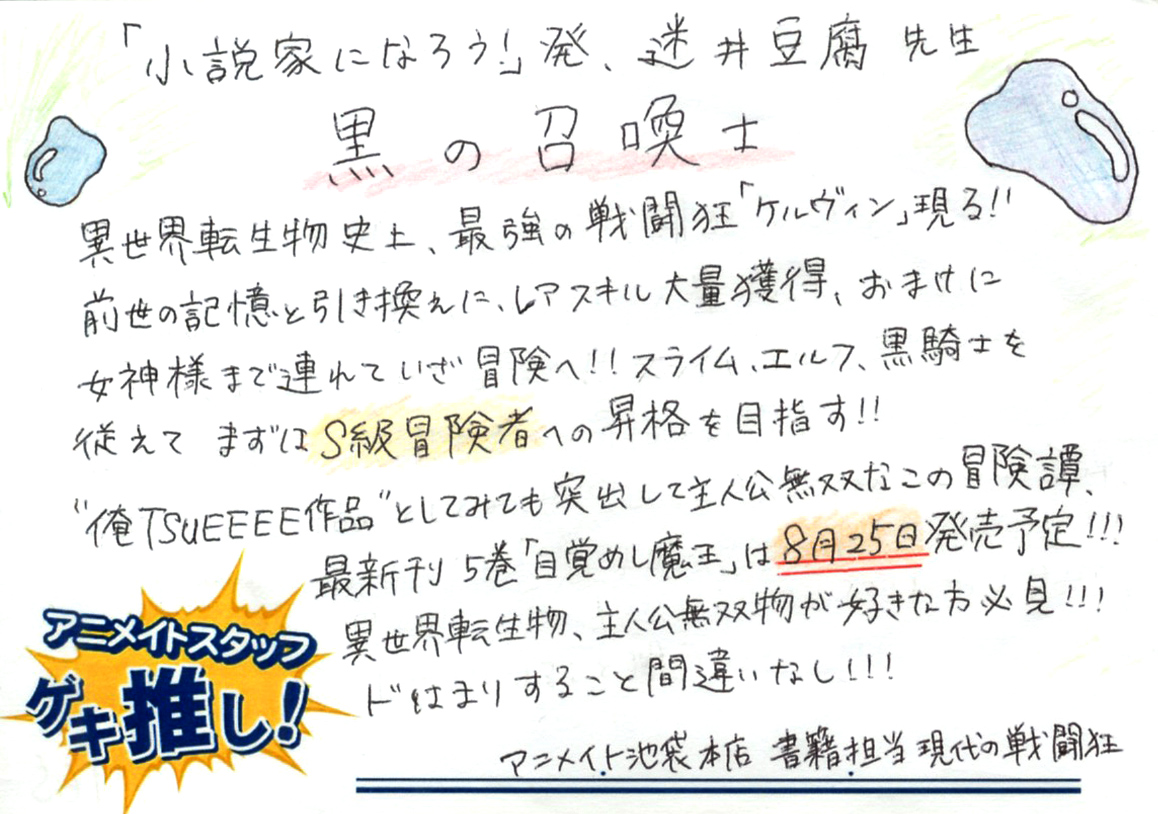 「小説家になろう!」発、迷井豆腐 先生
黒の召喚士
異世界転生物史上、最強の戦闘狂「ケルヴィン」現る!!
前世の記憶と引き換えに、レアスキル大量獲得、おまけに
女神様まで連れていざ冒険へ!!スライム、エルフ、黒騎士を
従えて まずはS級冒険者への昇格を目指す!!
"俺TSUEEEE作品"としてみても突出して主人公無双なこの冒険譚、
最新刊 5巻「目覚めし魔王」は8月25日発売予定!!!
異世界転生物、主人公無双物が好きな方必見!!!
ドはまりすること間違いなし!!!
アニメイトスタッフ
ゲキ推し!
アニメイト池袋本店 書籍担当 現代の戦闘狂